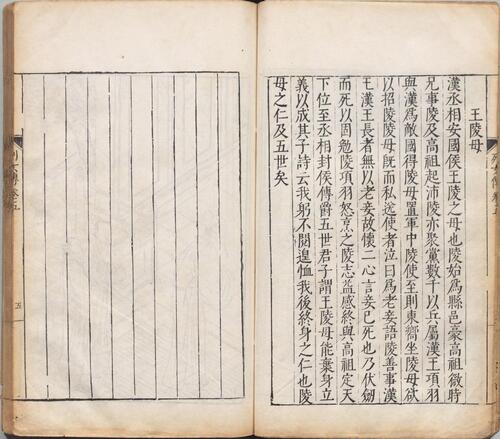 王陵母
漢丞相安國侯王陵之母也陵始爲縣邑豪高祖微時
兄事陵及高祖起沛陵亦聚黨數千以兵屬漢王項羽
與漢爲敵國得陵母置軍中陵使至則東嚮坐陵母欲
以招陵陵母旣而私送使者泣曰爲老妾語陵善事漢
王漢王長者無以老妾故懷二心言妾已死也乃伏劒
而死以固勉陵項羽怒烹之陵志益感終與高祖定天
下位至丞相封侯傳爵五世君子謂王陵母能棄身立
義以成其子詩云我躬不閱遑恤我後終身之仁也陵
母之仁及五世矣
五